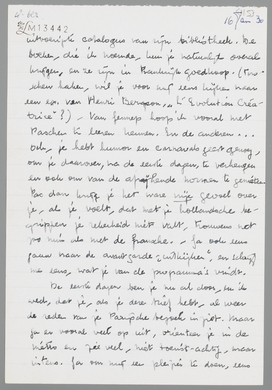 M13442
16/ Jan 30
uitvoerige catalogus van zijn bibliotheek. De
boeken, die ik noemde, kun je natuurlijk overal
krijgen, en ze zijn in Frankrijk goedkoop. (Tus-
schen haken, wil je voor mij eens kijken naar
een ex. van Henri Bergson, „L'Evolution Créa-
trice"?) – Van Gennep hoop ik vooral met
Paschen te leeren kennen. En de anderen...
Och, je hebt humor en
om je daarover, na de eerste dagen, te verheugen
en ook om van de horreur te genieten
Pas dan krijg je het ware gevoel over
je, als je voelt, dat met je hollandsche be-
grippen je zekerheid niet valt. Trouwens net
zoo min als met de fransche. – Ga ook eens
gauw naar de avantgarde-uitkijken, en schrijf
me eens, wat je van de programma's vindt.
De eerste dagen ben je nu al door, en ik
wed, dat je, als je deze brief hebt, al weer
de reden van je Parijsche bezoek in ziet. Maar
ga er vooral veel op uit, orienteer je in de
metro en zie veel, niet toerist-achtig, maar
intens. Ga om met een pleizier te doen, eens